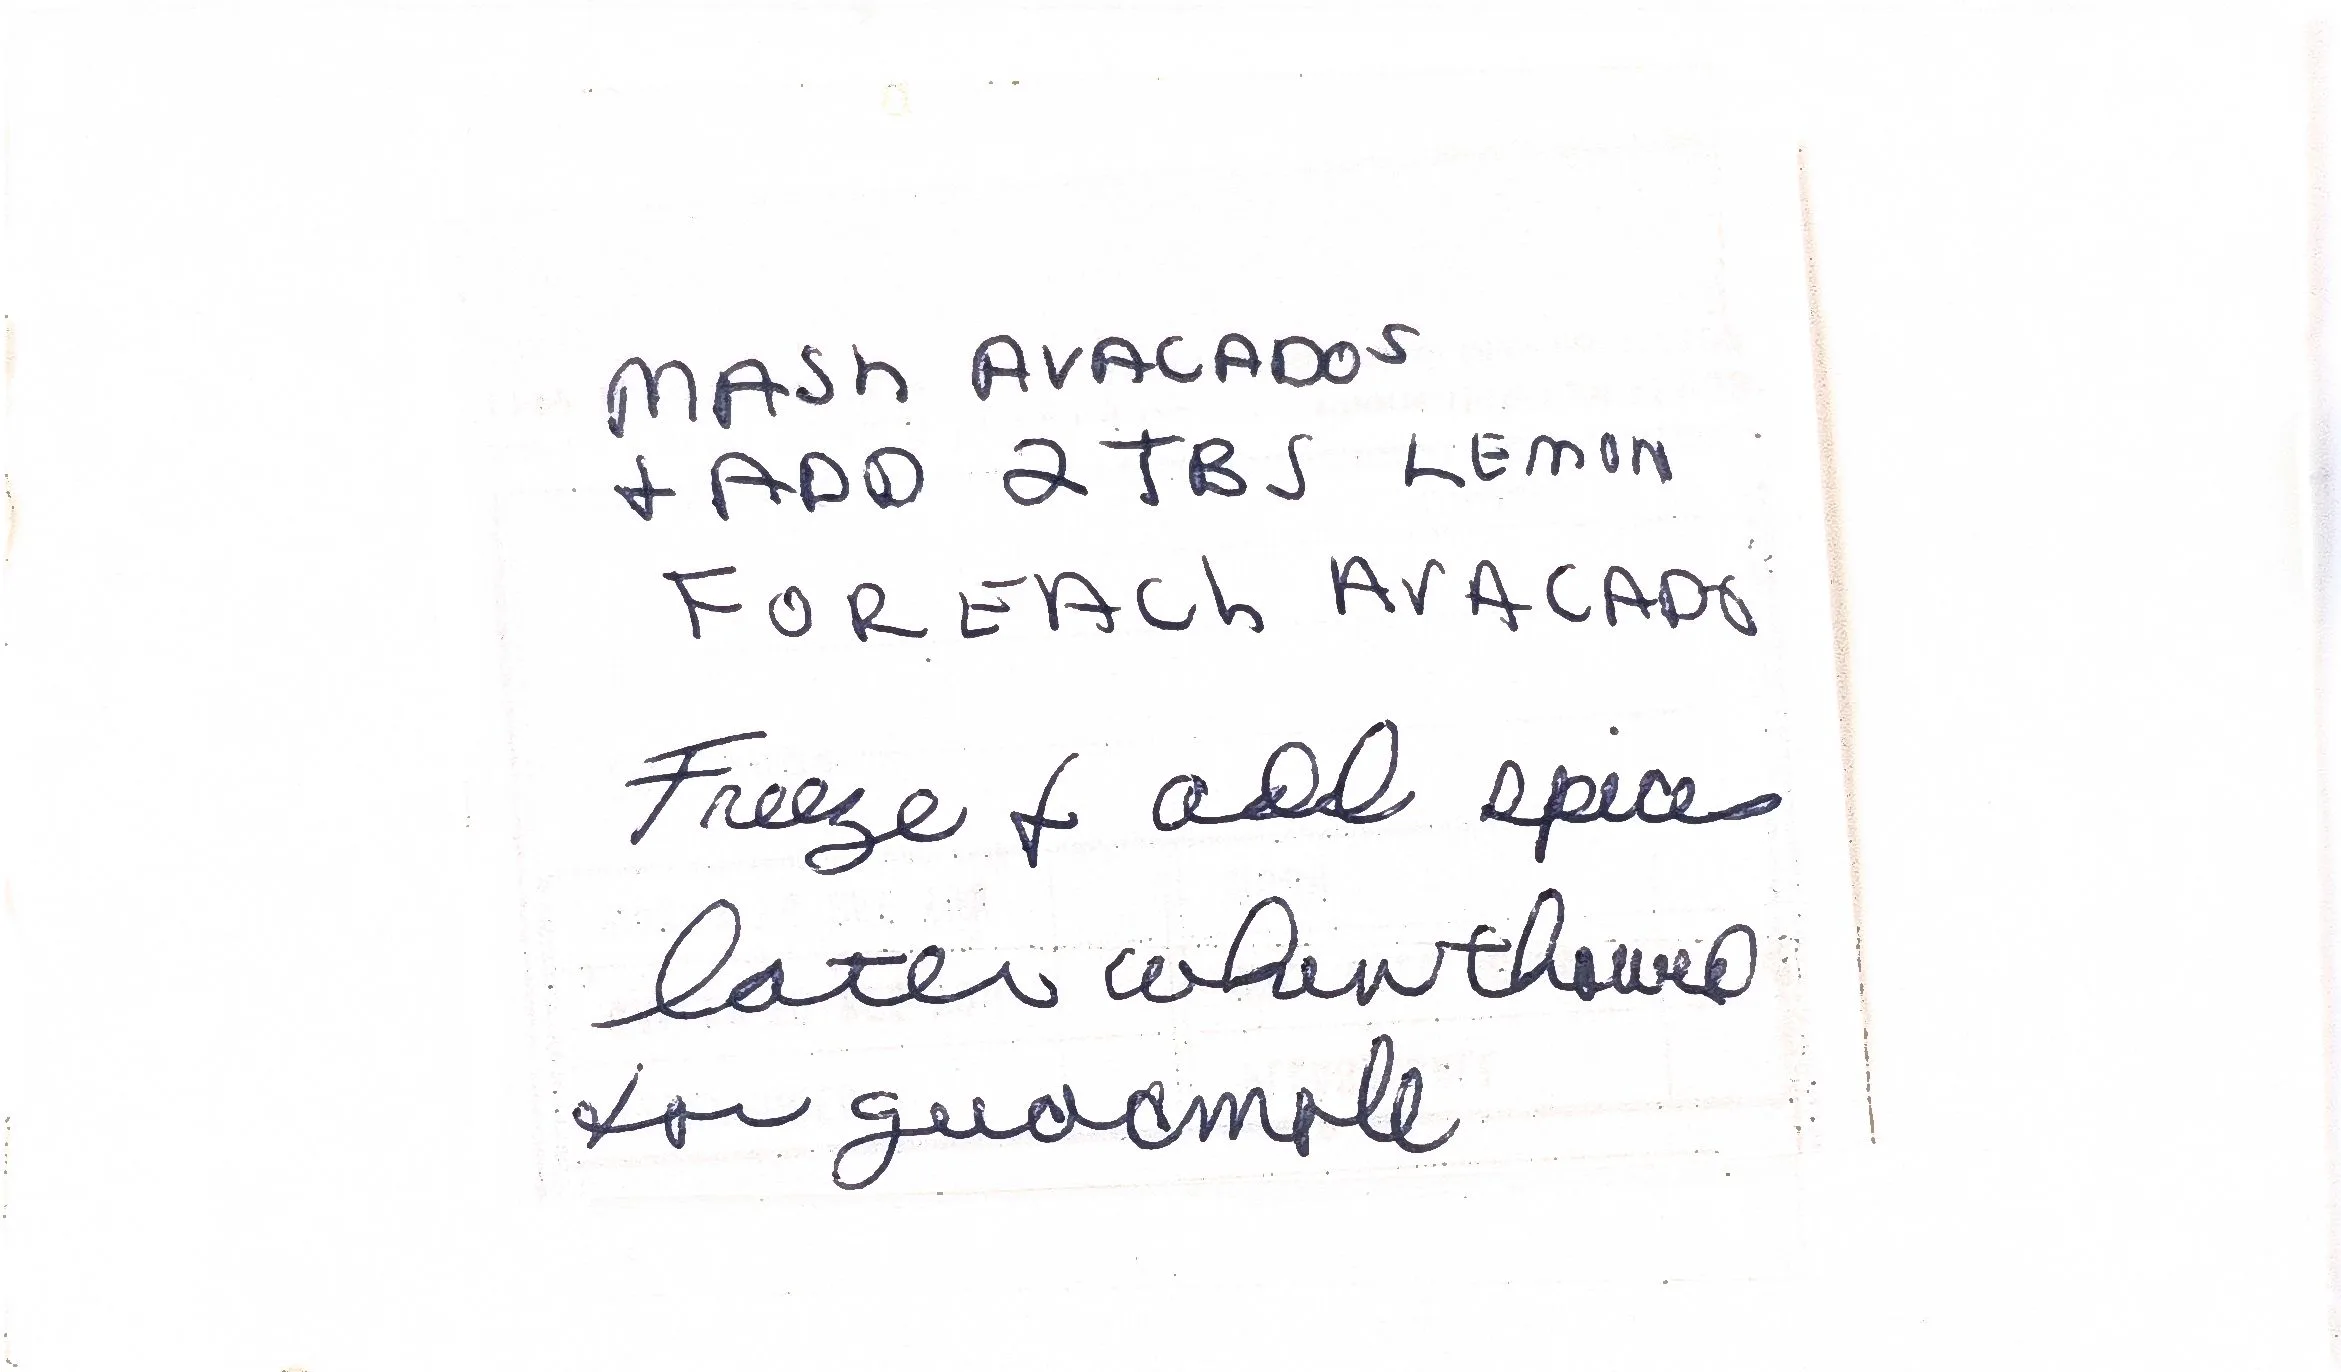 MASh AVACADOS
+ ADD 2 TBS LEMON
FOR EACh AVACADO
Freeze & add spices
later when thawed
for guacmole